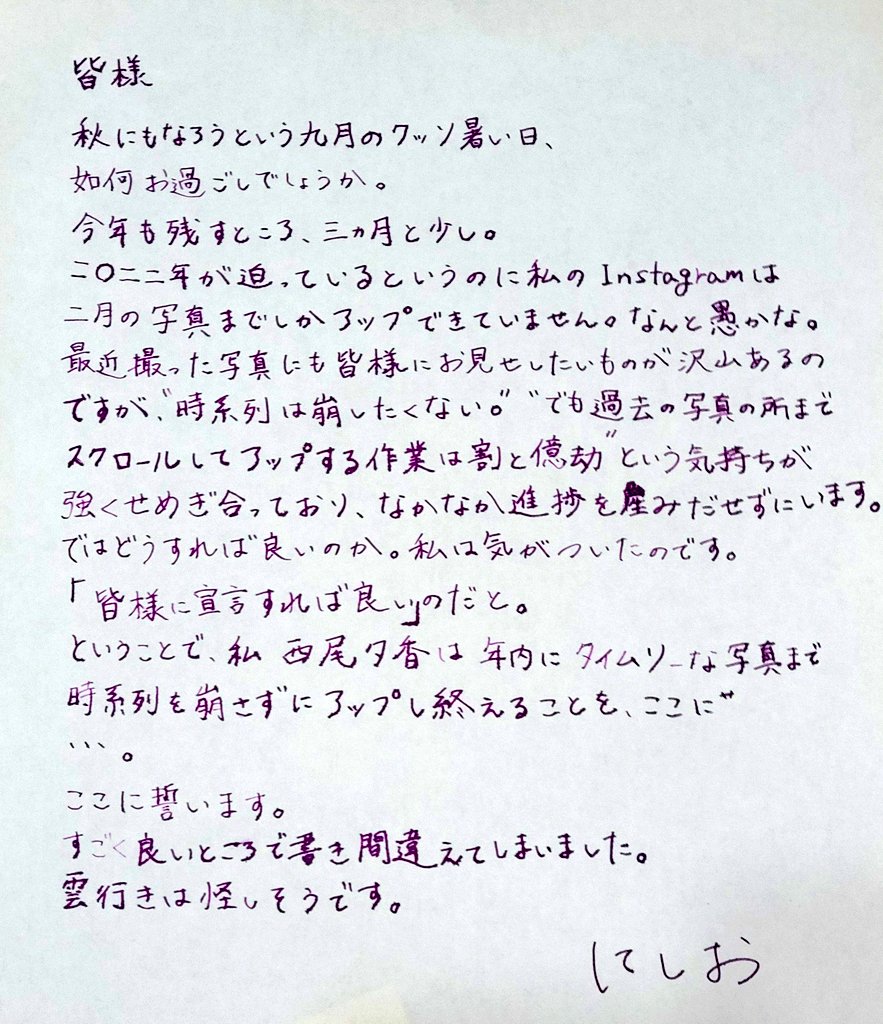 皆様
秋にもなろうという九月のクッソ暑い日、
如何お過ごしでしょうか。
今年も残すところ、三ヵ月と少し。
二〇二二年が迫っているというのに私のInstagramは
二月の写真までしかアップできていません。なんと愚かな。
最近撮った写真にも皆様にお見せしたいものが沢山あるの
ですが、"時系列は崩したくない。""でも過去の写真の所まで
スクロールしてアップする作業は割と億劫"という気持ちが
強くせめぎ合っており、なかなか進捗を産みだせずにいます。
ではどうすれば良いのか。私は気がついたのです。
「皆様に宣言すれば良い」のだと。
ということで、私 西尾夕香は年内にタイムリーな写真まで
時系列を崩さずにアップし終えることを、ここに
…。
ここに誓います。
すごく良いところで書き間違えてしまいました。
雲行きは怪しそうです。
にしお